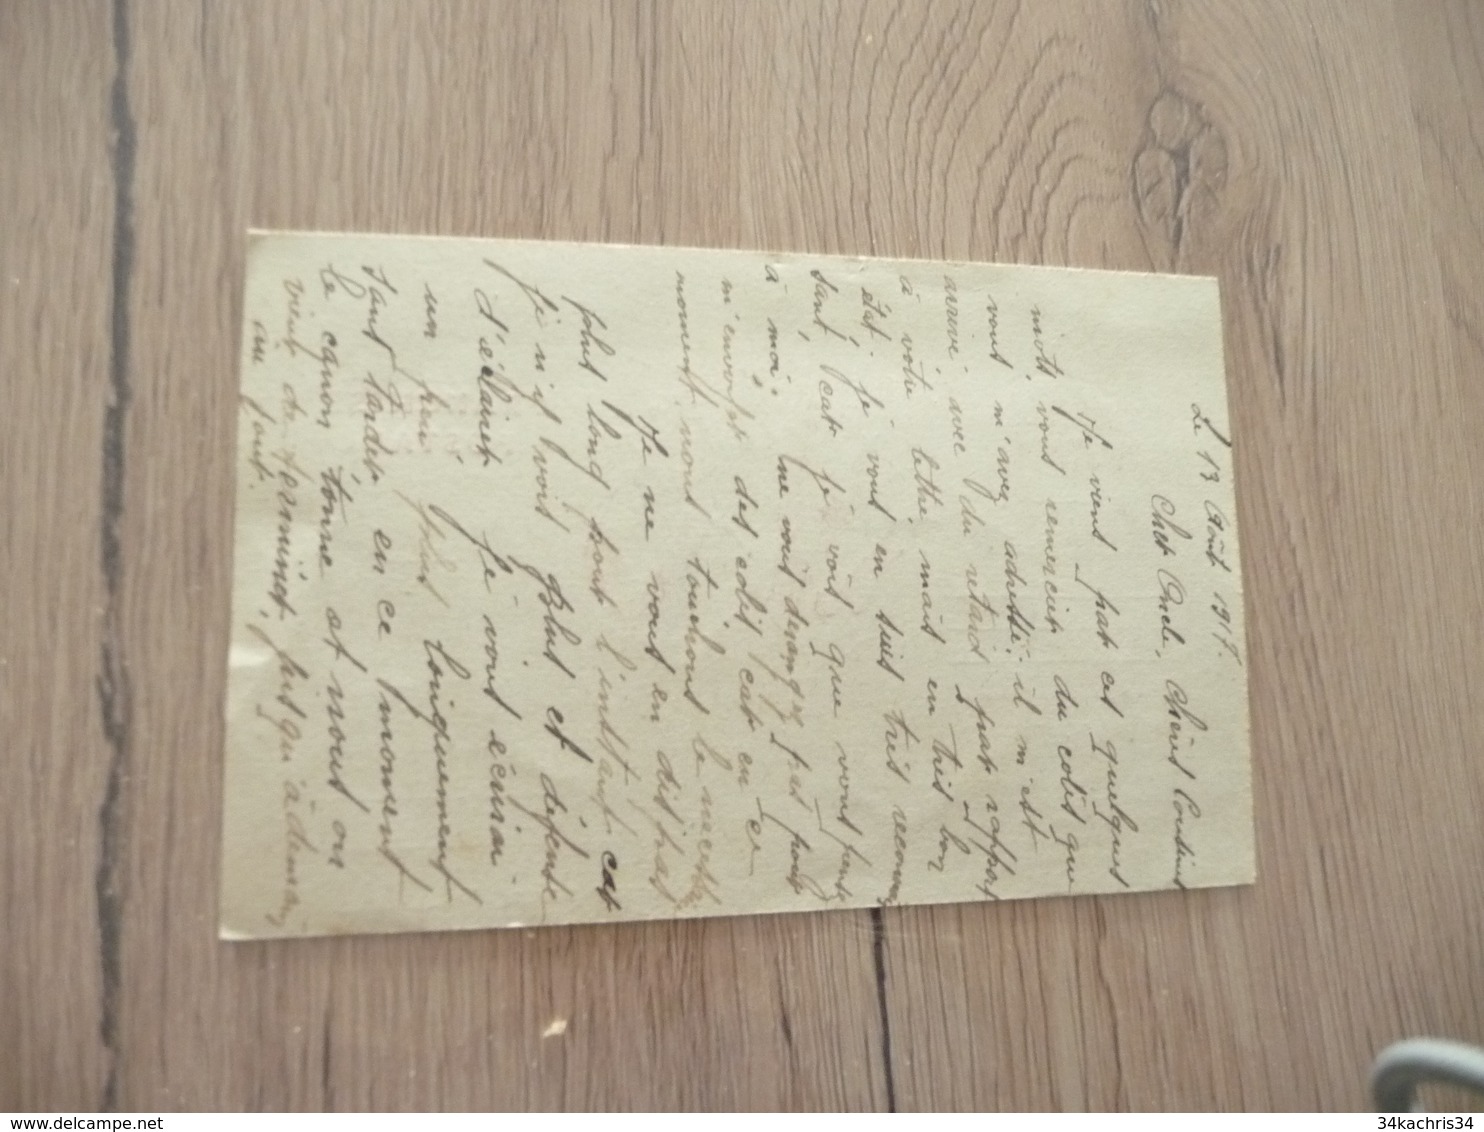 Le 13 Août 1917.
Cher Oncle, Chères Cousines
Je viens par ces quelques
mots, vous remercier du colis que
vous m'avez adressé; il m'est
arrivé, avec du retard, par rapport
à votre lettre, mais en très bon
état. je vous en suis très reconn
sant, car je vois que vous pensez
à moi; ne vous dérangez pas pour
m'envoyer des colis, car en ce
moment, nous touchons le nécess
Je ne vous en dis pas
plus long pour l'instant, car
je n'y vois plus et défense
d'éclairer. Je vous écrirai
un peu plus longuement
sans tarder, en ce moment
le canon tonne et nous on
vient de terminer, jusqu'à demain
au jour.
34kachris34